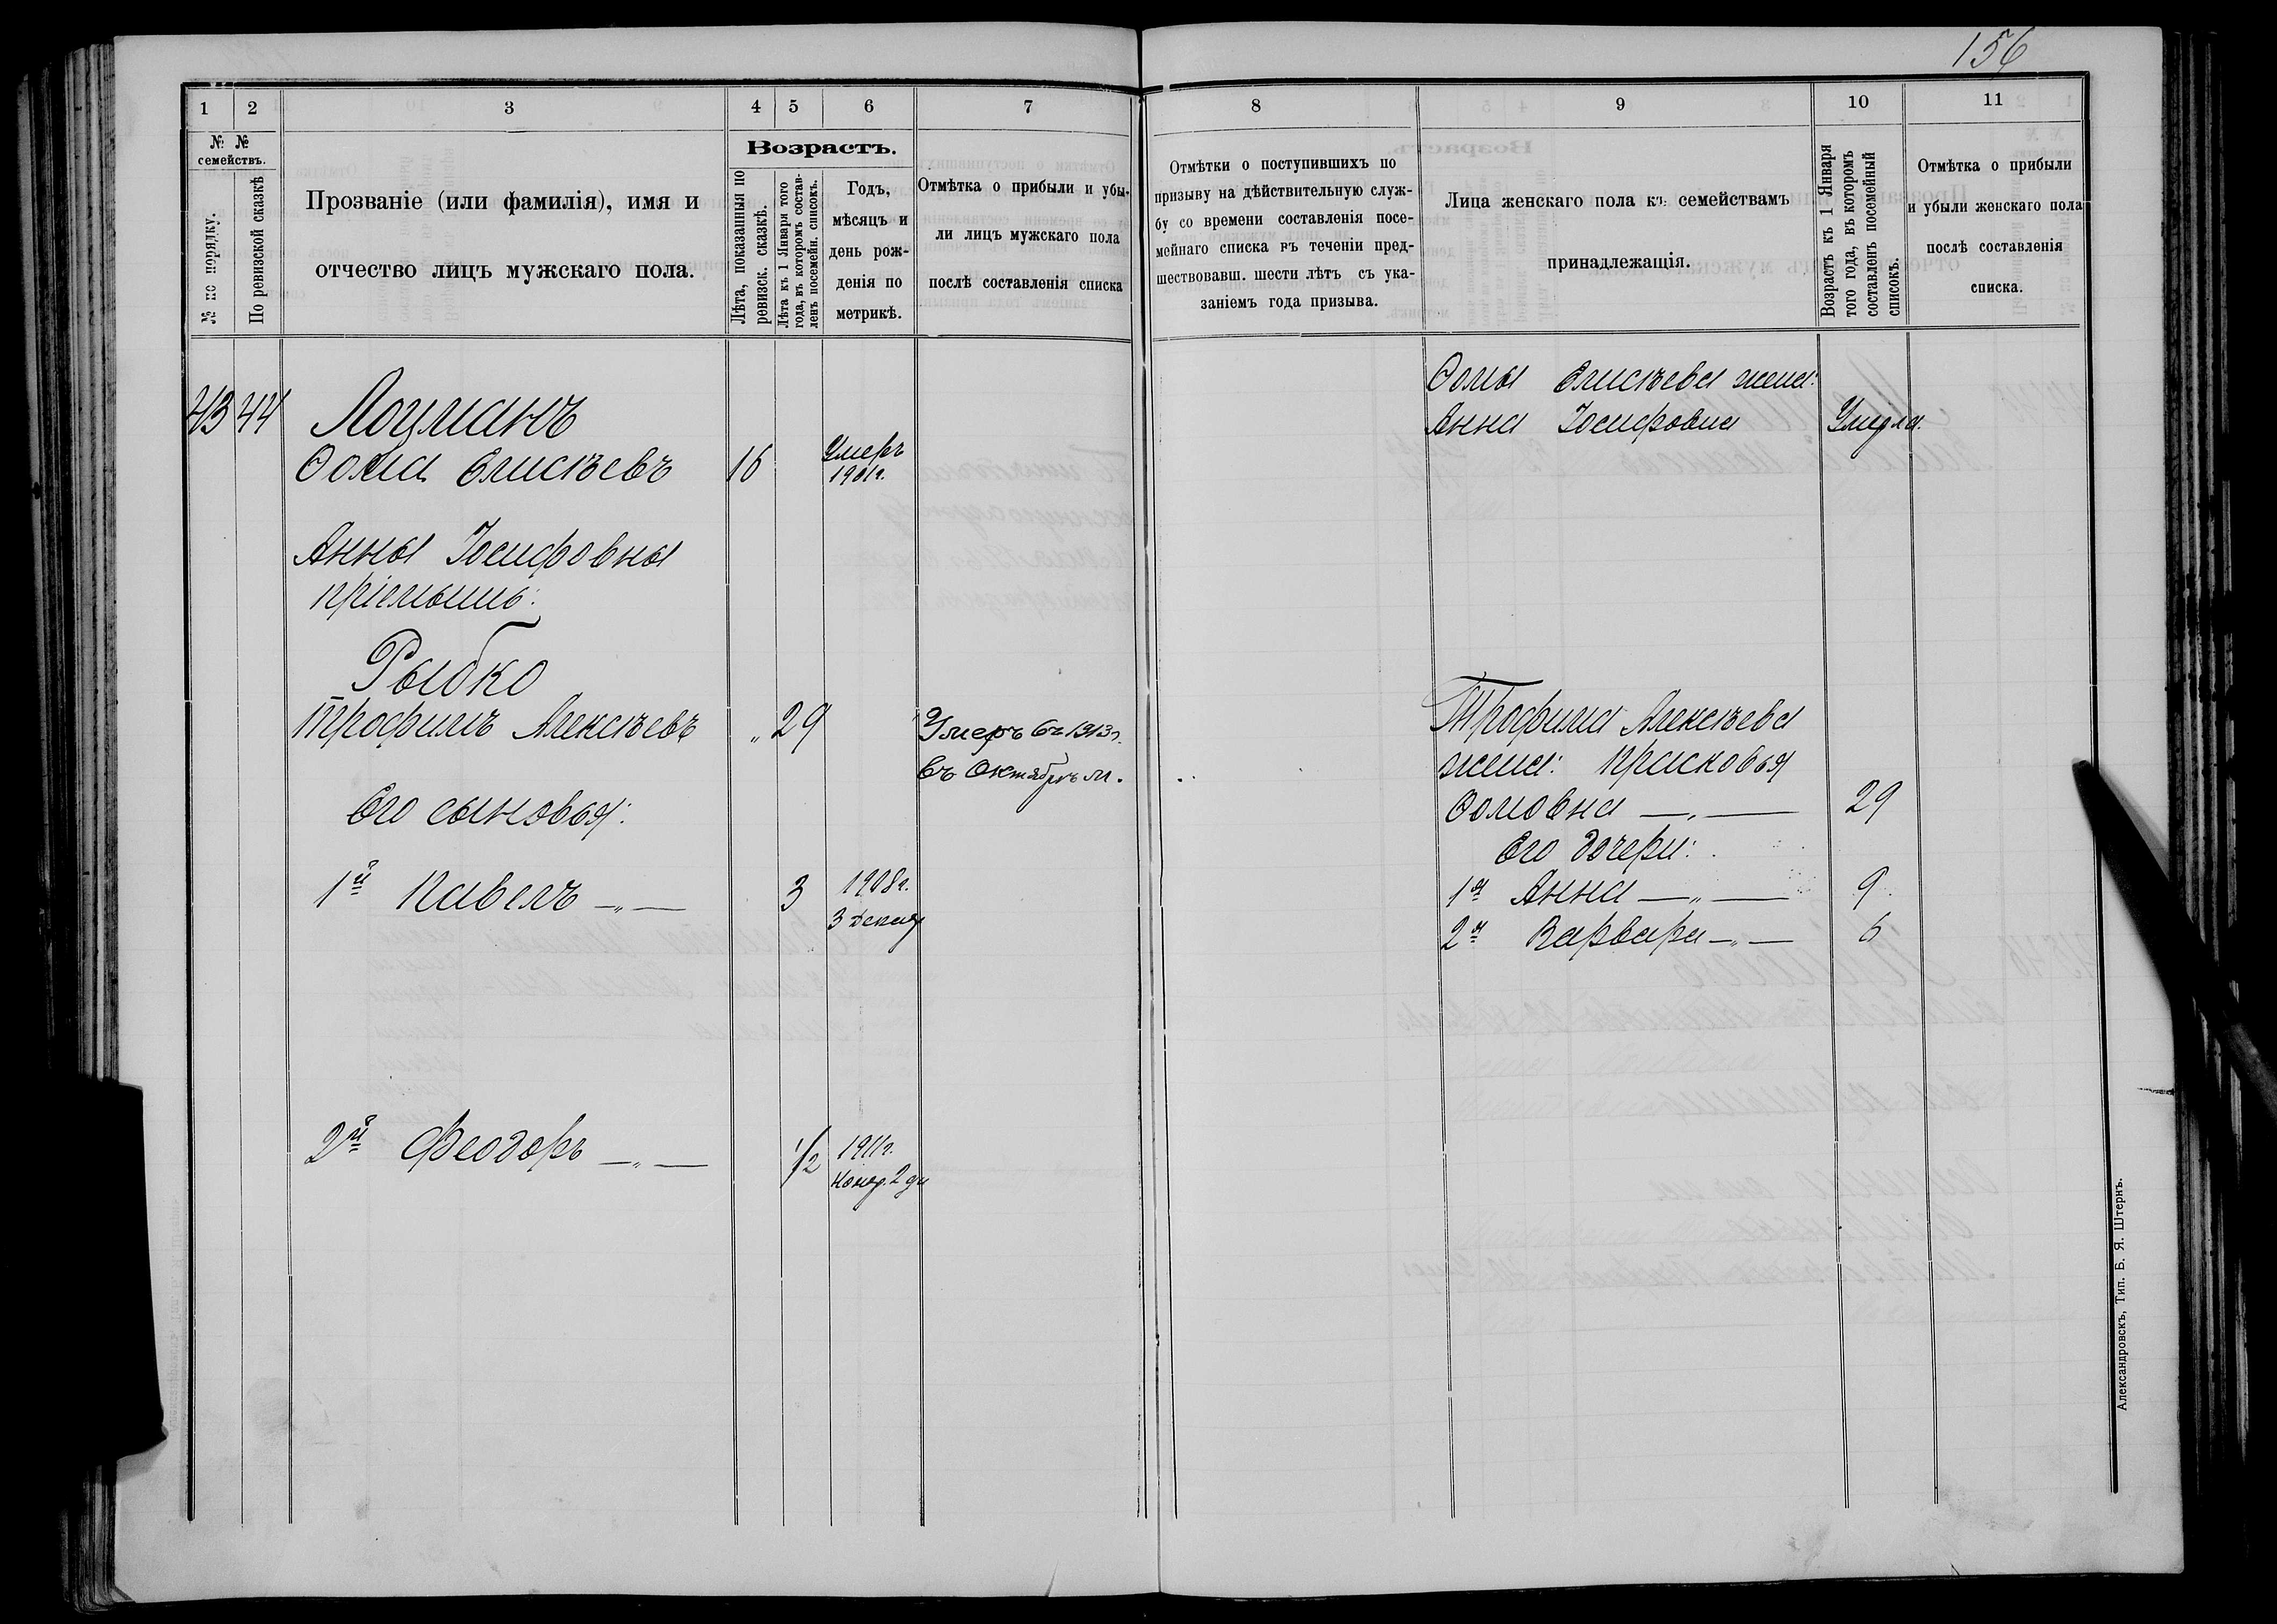 156
1 2 3 4 5 6 7
№ № семействъ.
№ по порядку.
По ревизской сказкѣ
Прозваніе (или фамилія), имя и
отчество лицъ мужскаго пола.
Возрастъ.
Лѣта, показанныя по
ревизск. сказкѣ.
Лѣта къ 1 Января того
года, въ которомъ состав-
ленъ посемейн. списокъ.
Годъ,
мѣсяцъ и
день рож-
денія по
метрикѣ.
Отмѣтка о прибыли и убы-
ли лицъ мужскаго пола
послѣ составленія списка
43 44 Лоцманъ
Ѳома Елисѣевъ 16 Умеръ
1901г.
Анны Іосифовны
пріемышъ:
Рыбко
Трофимъ Алексѣевъ „ 29 Умеръ въ 1913г.
въ Октябрѣ м.
Его сыновья:
1й Павелъ —„— 3 1908г.
3 Декаб
2й Феодоръ —„— 1/2 1911г.
2
8 9 10 11
Отмѣтки о поступившихъ по
призыву на дѣйствительную служ-
бу со времени составленія посе-
мейнаго списка въ теченіи пред-
шествовавш. шести лѣтъ съ ука-
заніемъ года призыва.
Лица женскаго пола къ семействамъ
принадлежащія.
Возрастъ къ 1 Января
того года, въ которомъ
составленъ посемейный
списокъ.
Отмѣтка о прибыли
и убыли женскаго пола
послѣ составленія
списка.
Ѳомы Елисѣева жена:
Анна Іосифовна Умерла.
Трофима Алексѣева
жена: Прасковья
Ѳомовна —„— 29
Его дочери:
1я Анна —„— 9.
2я Варвара —„— 6
Александровскъ, Тип. Б. Я. Штернъ.